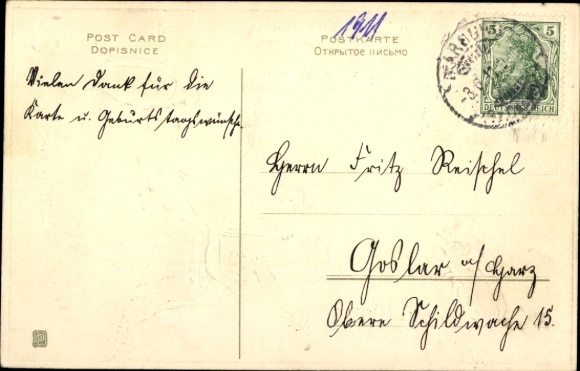 POST CARD
DOPISNICE
1911
POSTKARTE
ОТКРЫТОЕ ПИСЬМО
5 5
DEUTSCHES REICH
Vielen Dank für die
Karte u. Geburtstagswünsche.
Herrn Fritz Reischel
Goslar a/Harz
Obere Schildwache 15.